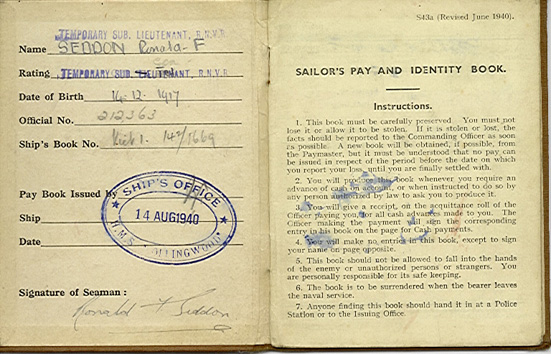 TEMPORARY SUB. LIEUTENANT, R.N.V.R.
Name SEDDON Ronald F
Rating TEMPORARY SUB. LIEUTENANT, R.N.V.R.
Date of Birth 14.12.1917
Official No. 212363
Ship's Book No.
Pay Book Issued by
SHIP'S OFFICE
Ship
14 AUG 1940
Date
H.M.S. COLLINGWOOD
Signature of Seaman :
Ronald F Seddon
S43a (Revised June 1940).
SAILOR'S PAY AND IDENTITY BOOK.
Instructions.
1. This book must be carefully preserved. You must not
lose it or allow it to be stolen. If it is stolen or lost, the
facts should be reported to the Commanding Officer as soon
as possible. A new book will be obtained, if possible, from
the Paymaster, but it must be understood that no pay can
be issued in respect of the period before the date on which
you report your loss until you are finally settled with.
2. You will produce the book whenever you require an
advance of cash on account, or when instructed to do so by
any person authorised by law to ask you to produce it.
3. You will give a receipt, on the acquittance roll of the
Officer paying you, for all cash advances made to you. The
Officer making the payment will sign the corresponding
entry in this book on the page for Cash payments.
4. You will make no entries in this book, except to sign
your name on page opposite.
5. This book should not be allowed to fall into the hands
of the enemy or unauthorized persons or strangers. You
are personally responsible for its safe keeping.
6. The book is to be surrendered when the bearer leaves
the naval service.
7. Anyone finding this book should hand it in at a Police
Station or to the Issuing Office.